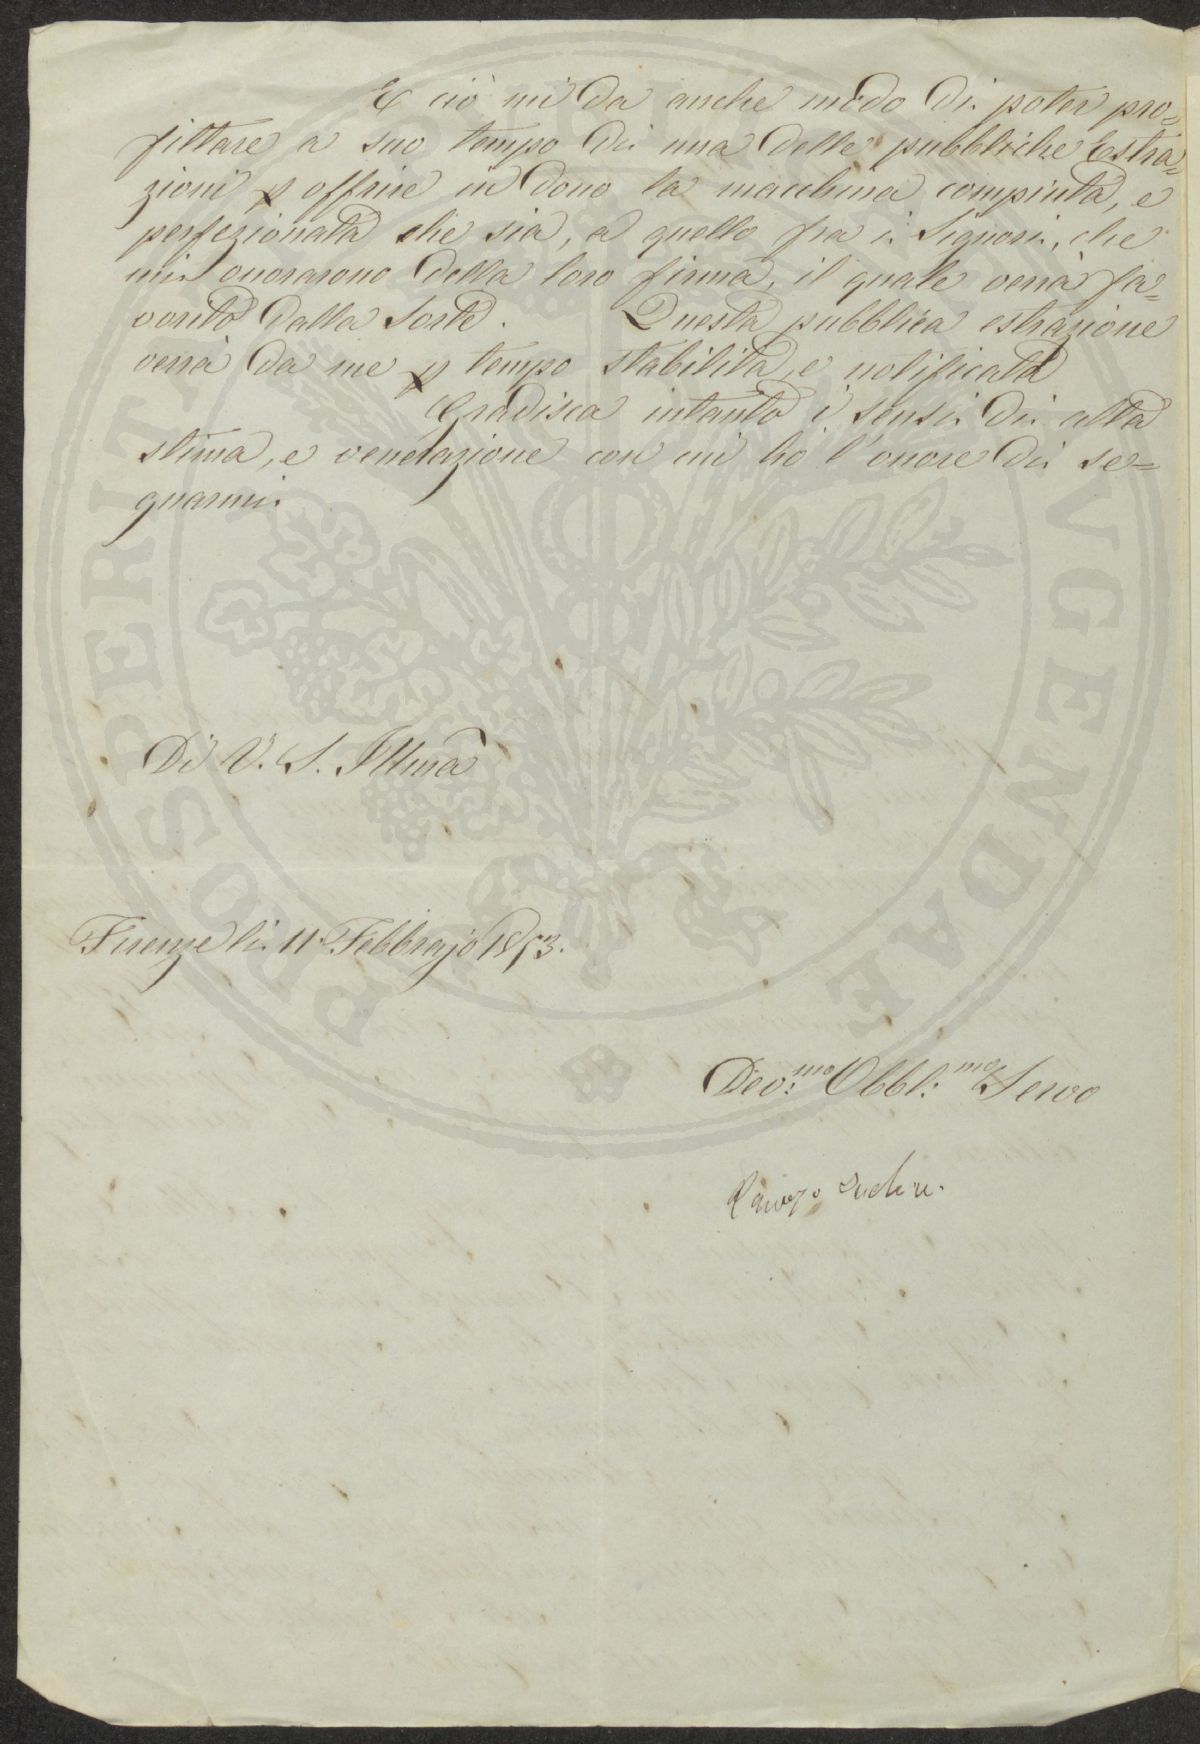 E ciò mi da anche modo di poter pro=
fittare a suo tempo di una delle pubbliche Estra=
zioni p offrire in dono la macchina compiuta, e
perfezionata che sia, a quello fra i Signori, che
mi onorarono della loro firma, il quale verrà fa=
vorito dalla sorte. Questa pubblica estrazione
verrà da me p tempo stabilita, e notificata
Gradisca intanto i sensi di alta
stima, e venerazione con cui ho l'onore di se=
gnarmi
Di V. S. Illma
Firenze li 11 Febbrajo 1853.
Dev:mo Obbl:mo Servo
PROSPERITATI PUBLICAE AVGENDAE